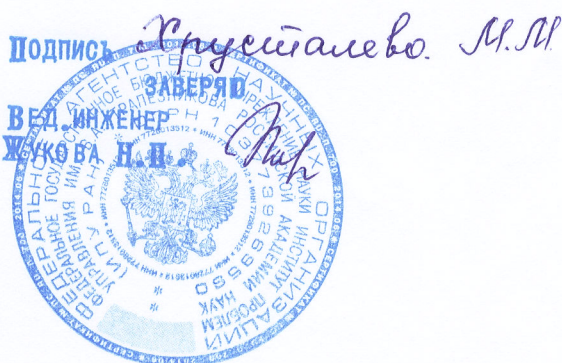 ПОДПИСЬ Хрусталева. М.М
ЗАВЕРЯЮ
ВЕД.ИНЖЕНЕР
ЖУКОВА Н.П.
ФЕДЕРАЛЬНОЕ АГЕНТСТВО НАУЧНЫХ ОРГАНИЗАЦИЙ
ФЕДЕРАЛЬНОЕ ГОСУДАРСТВЕННОЕ БЮДЖЕТНОЕ УЧРЕЖДЕНИЕ НАУКИ ИНСТИТУТ ПРОБЛЕМ
УПРАВЛЕНИЯ ИМ. В.А. ТРАПЕЗНИКОВА РОССИЙСКОЙ АКАДЕМИИ НАУК
(ИПУ РАН)